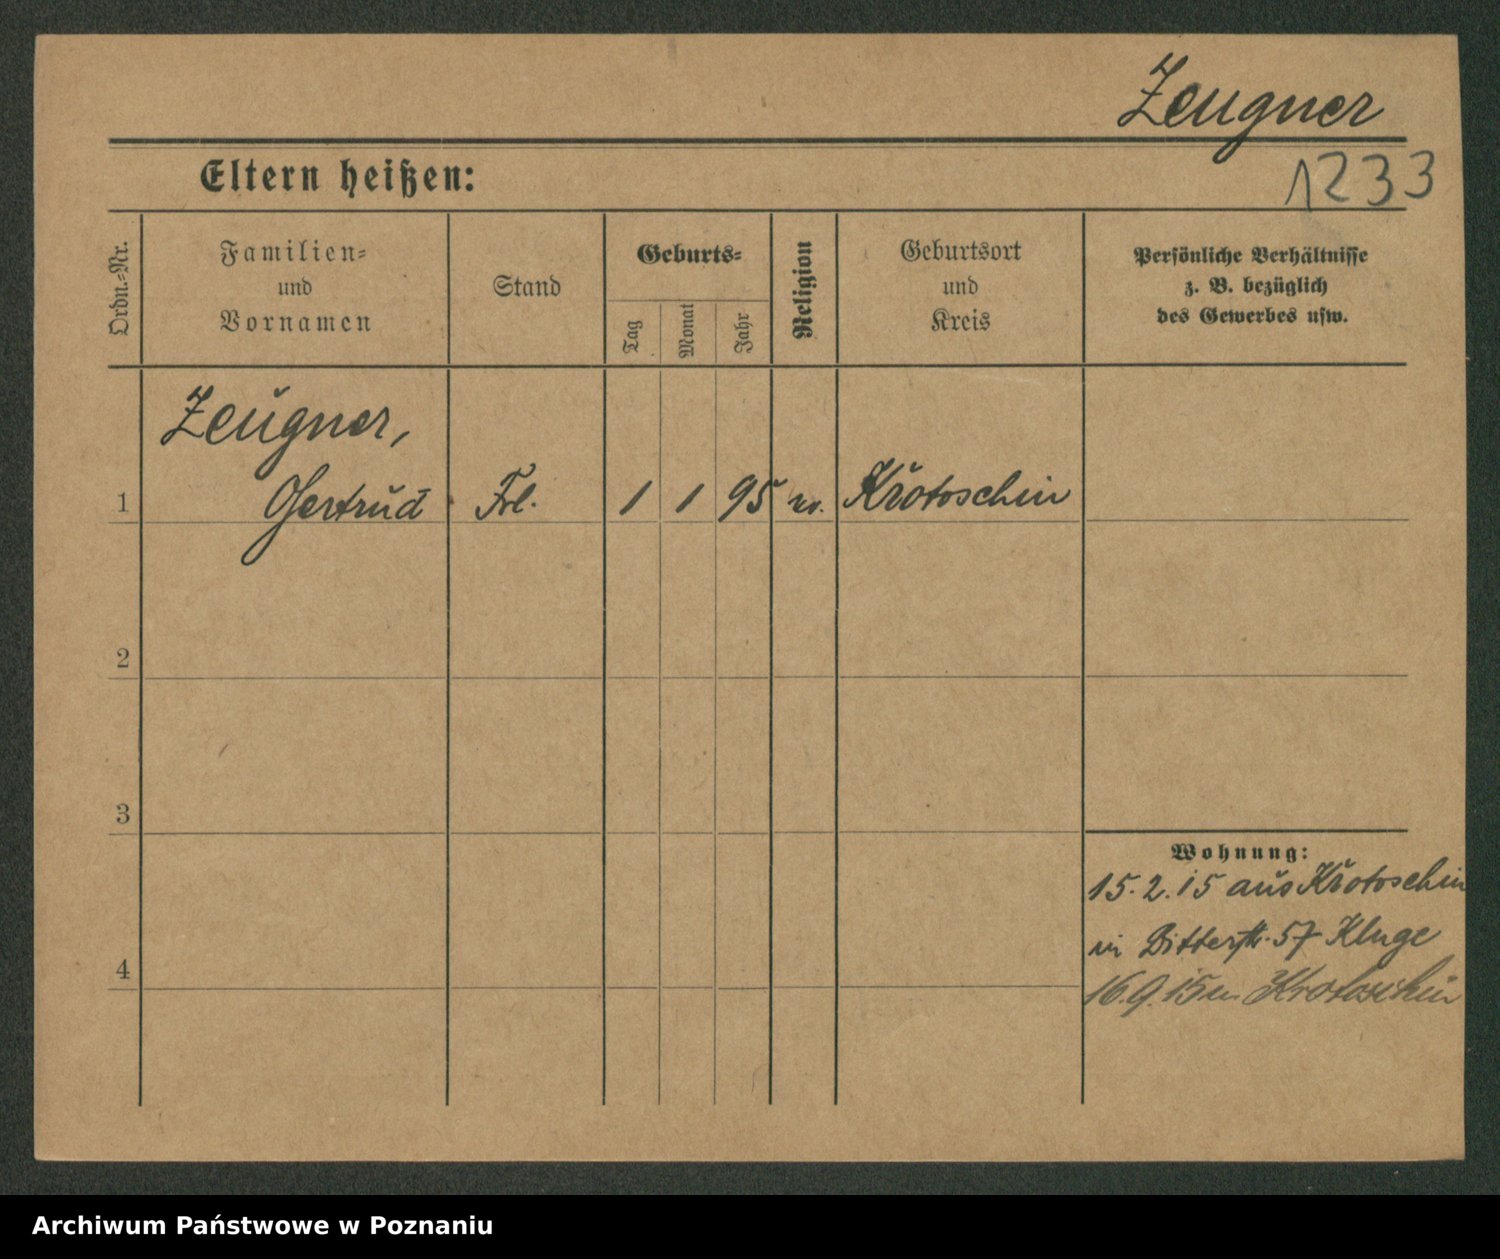 Zeugner
1233
Eltern heißen:
Ordn.-Nr.
Familien-
und
Vornamen
Stand
Geburts-
Tag
Monat
Jahr
Religion
Geburtsort
und
Kreis
Persönliche Verhältnisse
z. B. bezüglich
des Gewerbes usw.
Zeugner,
1 Gertrud Frl. 1 1 95 Krotoschin
2
3
4
Wohnung:
15.2.15 aus Krotoschin
in Bitterstr. 57 Kluge
16.9.15 n. Krotoschin
Archiwum Państwowe w Poznaniu